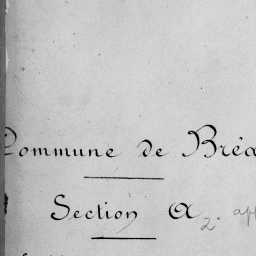 Commune de Bréa
Section A 2.